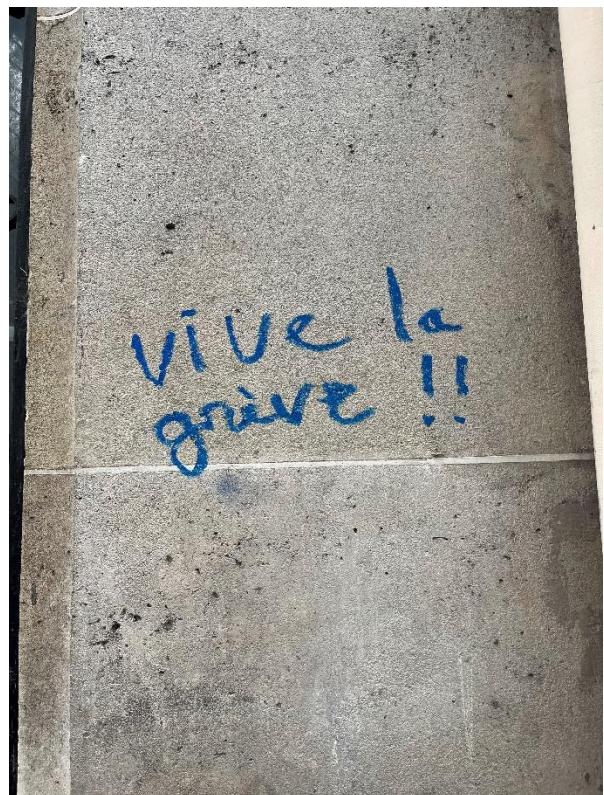 vive la
grève !!